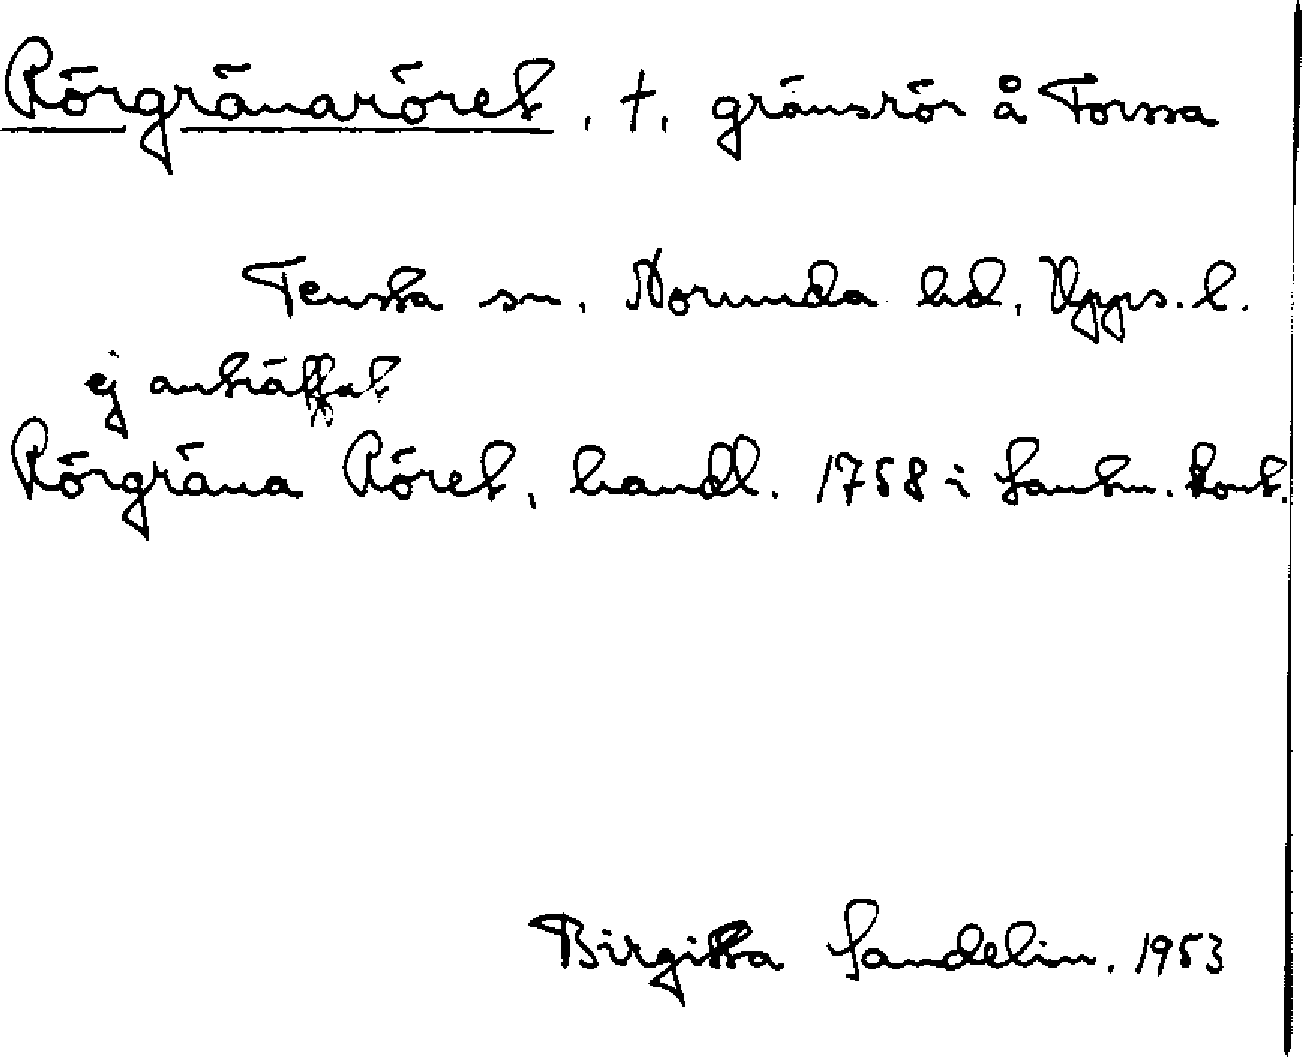 Rörgränaröret, †, gränsrör å Forssa
Tensta sn, Norunda hd, Upps. l.
ej anträffat
Rörgräna Röret, handl. 1758 i Lantm. kont.
Birgitta Sandelin. 1953